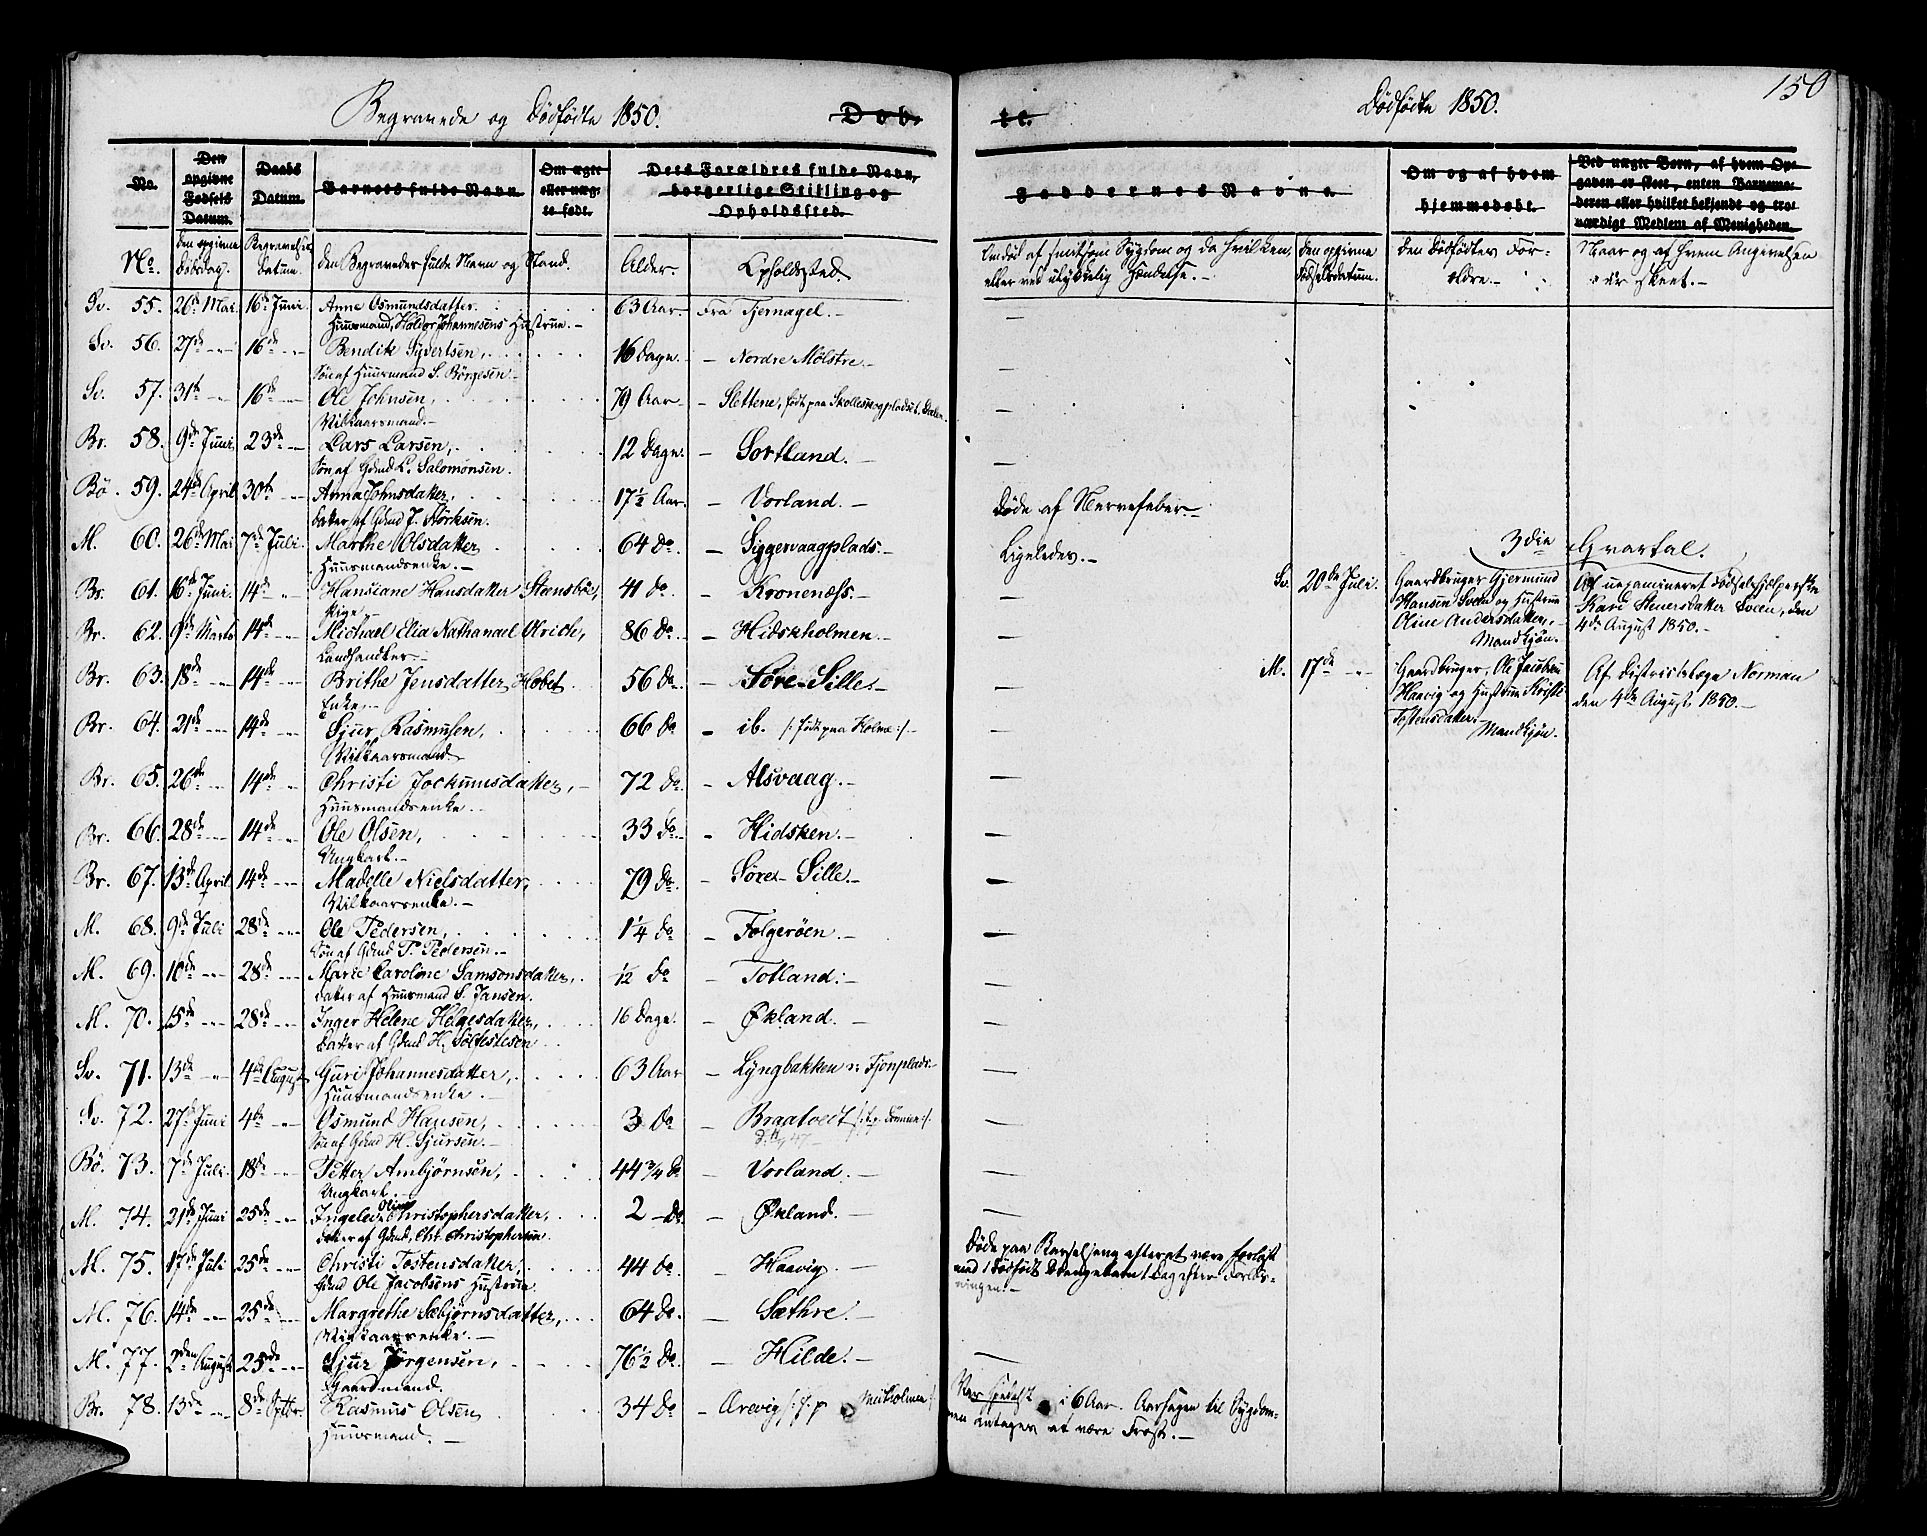 Begravede og Dødfødte 1850.
Døb-
te.
Dødfødte 1850.
150
No.
Den opgivne Fødsels Datum.
Daabs Datum.
Barnets fulde Navn
Om ægte eller uægte født.
Dets Forældres fulde Navn, borgerlige Stilling og Opholdssted.
Faddernes Navne.
Om og af hvem hjemmedøbt.
Ved uægte Børn, af hvem Opgaven er skeet, enten Barnemoderen eller hvilket bekjendt og troværdige Medlem af Menigheden.
No.
den opgivne Dødsdag.
Begravelses Datum.
den Begravedes fulde Navn og Stand.
Alder.
Opholdssted.
Om død af smitsom Sygdom og da hvilken, eller ved ulykkelig Hændelse.
den opgivne Fødselsdatum.
den Dødfødtes Forældre.
Naar og af hvem Angivelsen er skeet.
Sv. 55. 26de Mai. 16de Juni. Anne Osmundsdatter. 63 Aar Fra Tjernagel.
Huusmand, Haldor Johannesens Hustrue.
Sv. 56. 27de 16de Bendik Syvertsen, 16 Dage. Nordre Mølstre.
Søn af Huusmand S. Børgesen
Sv. 57. 31te 16de Ole Johnsen, 79 Aar. Slettene, født paa
Vilkaarsmand.
Br. 58. 9de Juni 23de Lars Larsen, 12 Dage. Sortland.
Søn af Gdmd L. Salomonsen.
Bö. 59. 24de April 30te Anna Johnsdatter, 17½ Aar. Vorland.
Datter af Gdmd J. Størksen.
Døde af Nervefeber.
M. 60. 26de Mai 7de Juli. Marthe Olsdatter 64 do. Siggervaagplads.
Huusmandsenke.
Ligeledes.
3die Qvartal.
Br. 61. 16de Juni. 14de Hansiane Hansdatter Steensbøe, 41 do. Kronenæss.
Pige.
Sv. 20de Juli. Gaardbruger Gjermund
Hansen Sveen og Hustrue
Oline Andersdatter,
Mandkjøn.
Af uexamineret Fødselshjelperske
Kari Steuersdatter Sveen, den
4de August 1850.
Br. 62. 9de Marts 14de Michael Elia Nathanael Olrich, 86 do. Hidskholmen.
Landhandler.
Br. 63. 18de 14de Brithe Jensdatter Habet 56 do. Søre-Sille.
Enke,
M. 17de Gaardbruger, Ole Jacobsen
Haavig og Hustrue Kristi
Tostensdatter.
Mandkjøn.
Af Districtslæge Norman
den 4de August, 1850.
Br. 64. 21de 14de Sjur Rasmusen, 66 do. ib. /: født paa Holme :/
Vilkaarsmand.
Br. 65. 26de 14de Christi Jockumsdatter, 72 do. Alsvaag.
Huusmandsenke.
Br. 66. 28de 14de Ole Olsen, 33 do. Hidsken.
Ungkarl.
Br. 67. 13de April 14de Madelle Nielsdatter, 79 do. Søre-Sille.
Vilkaarsenke.
M. 68. 9de Juli 28de Ole Pedersen, 1¼ do Folgerøen.
Søn af Gdmd P. Pedersen.
M. 69. 10de 28de Marie Caroline Samsonsdatter, ½ do Totland.
Datter af Huusmand S. Jansen.
M. 70. 15de 28de Inger Helene Helgesdatter, 16 Dage. Økland.
Datter af Gdmd H.
Sv. 71. 13de 4de August Guri Johannesdatter, 63 Aar Lyngbakken u: Fjonplads.
Huusmandsenke.
Sv. 72. 27de Juni 4de Osmund Hansen, 3 do Braatvedt
Søn af Gdmd H. Sjursen.
Bö. 73. 7de Juli. 18de Petter Ambjørnsen, 44¾ do Vorland.
Ungkarl.
M. 74. 21de Juni 25de Ingeleiv Oline Christophersdatter, 2 do Økland.
Datter af Gdmd, Chr. Christophersen
M. 75. 17de Juli 25de Christi Tostensdatter, 44 do. Haavig.
Gdmd Ole Jacobsens Hustrue.
Døde paa Barselseng efter at være forløst
med 1 dødfødt Drengebarn 1 Dag efter Forløs-
ningen.
M. 76. 14de 25de Margrethe Sæbjørnsdatter, 64 do. Sæthre.
Vilkaarsenke.
M. 77. 2den August 25de Sjur Jørgensen, 76½ do Hilde.
Gaardmand.
Br. 78. 13de 8de Septbr. Rasmus Olsen 34 do Arevig /: f. p. :/
Huusmand.
Var spedalsk i 6 Aar. Aarsagen til Sygdom-
men antages at være Frost.